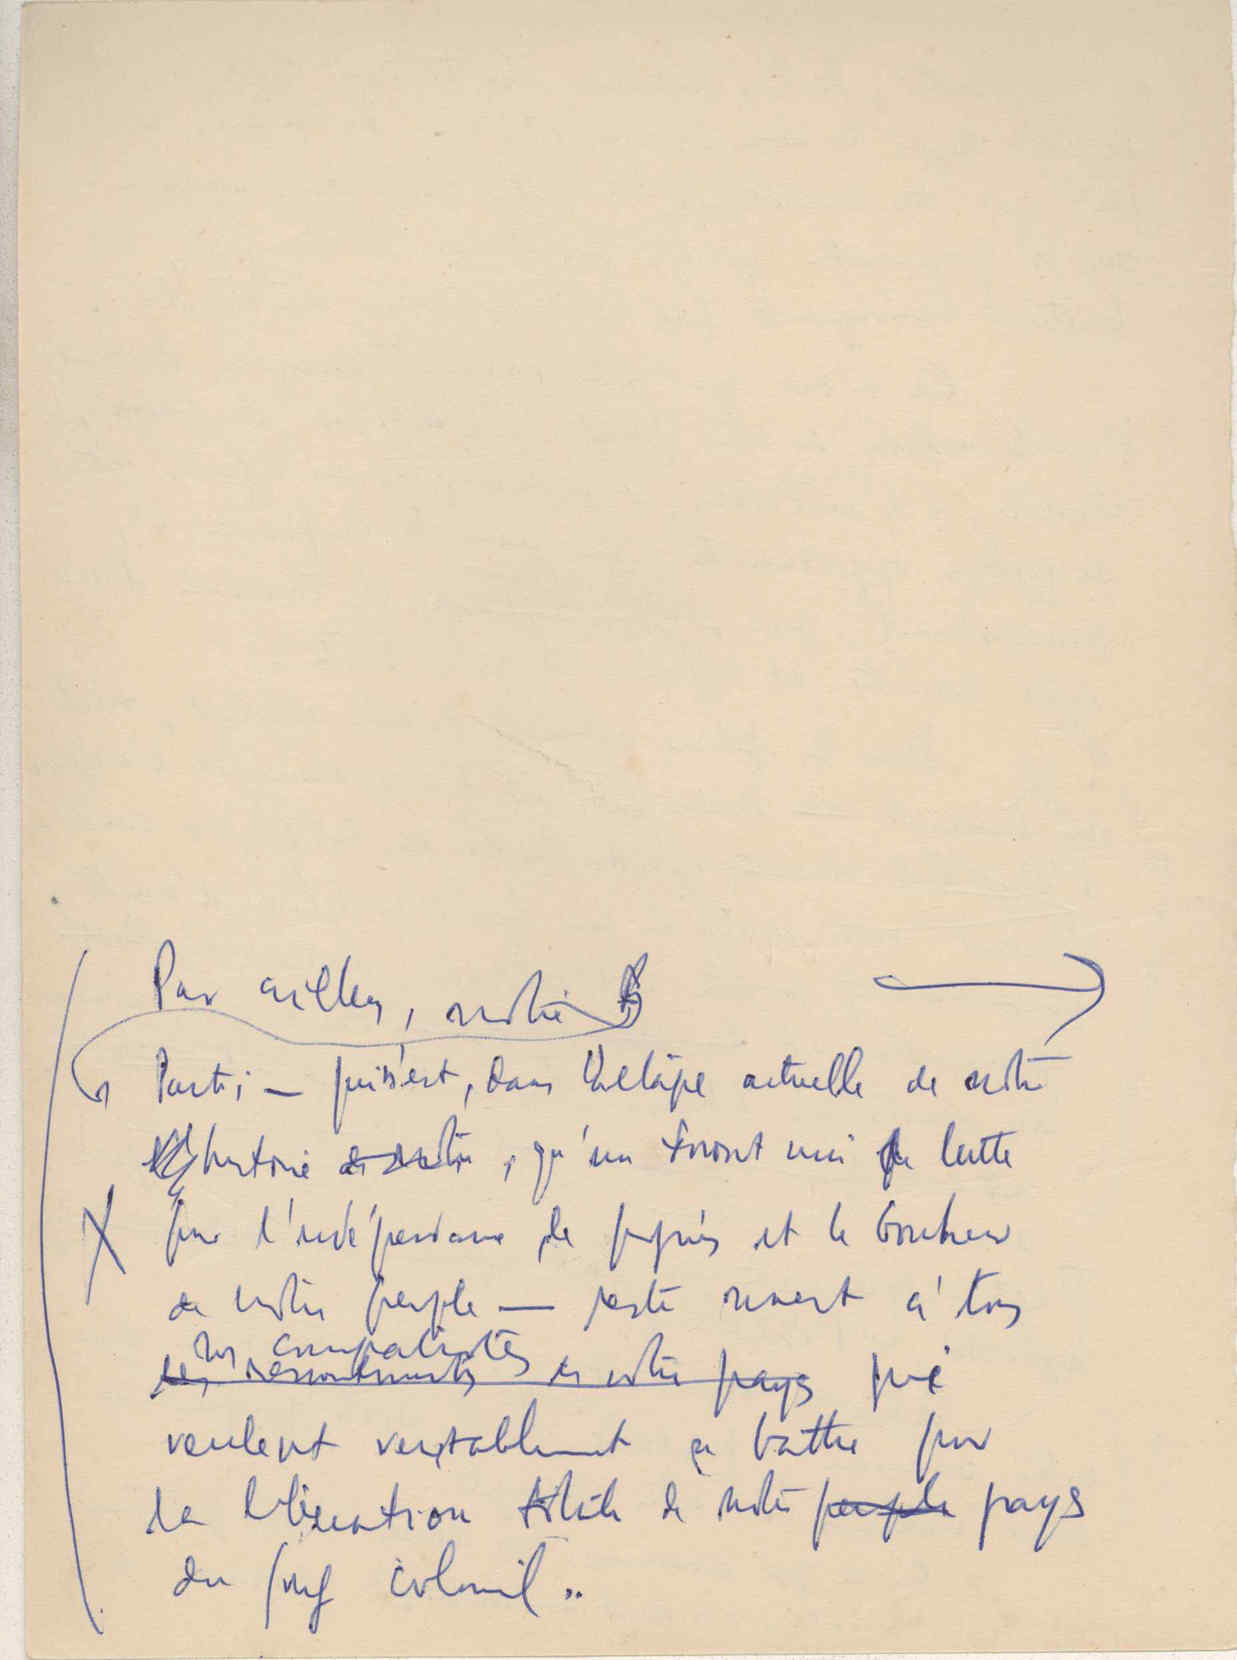 Par ailleurs, notre
Parti — puisqu'est, dans l'étape actuelle de notre
histoire de notre, qu'un Front uni de lutte
pour l'indépendance, le progrès et le bonheur
de notre peuple — reste ouvert à tous
nos compatriotes
les ressortissants de notre pays qui
veulent véritablement se battre pour
la libération totale de notre peuple pays
du joug colonial..